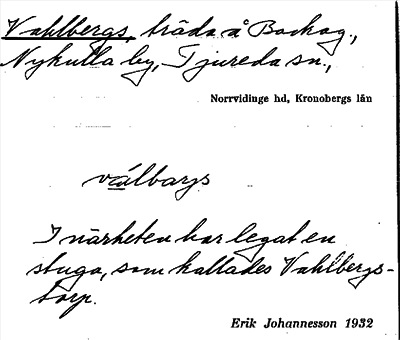 Vahlbergs, träda å Backag.,
Nykulla by, Tjureda sn.,
Norrvidinge hd, Kronobergs län
válbarjs
I närheten har legat en
stuga, som kallades Vahlbergs-
torp.
Erik Johannesson 1932